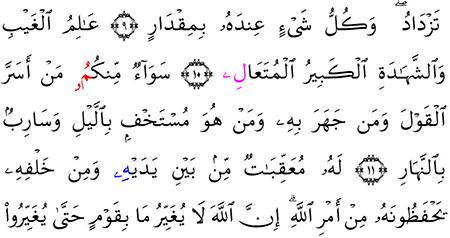 تَزْدَادُ ۖ وَكُلُّ شَيْءٍ عِندَهُۥ بِمِقْدَارٍ ٩ عَـٰلِمُ الْغَيْبِ
وَالشَّهَـٰدَةِ الْكَبِيرُ الْمُتَعَالِۦ ١٠ سَوَآءٌ مِّنكُمُۥ مَنْ أَسَرَّ
الْقَوْلَ وَمَن جَهَرَ بِهِۦ وَمَنْ هُوَ مُسْتَخْفٍۭ بِالَّيْلِ وَسَارِبٌۢ
بِالنَّهَارِ ١١ لَهُۥ مُعَقِّبَـٰتٌ مِّنۢ بَيْنِ يَدَيْهِۦ وَمِنْ خَلْفِهِۦ
يَحْفَظُونَهُۥ مِنْ أَمْرِ اللَّهِ ۗ إِنَّ اللَّهَ لَا يُغَيِّرُ مَا بِقَوْمٍ حَتَّىٰ يُغَيِّرُوا۟